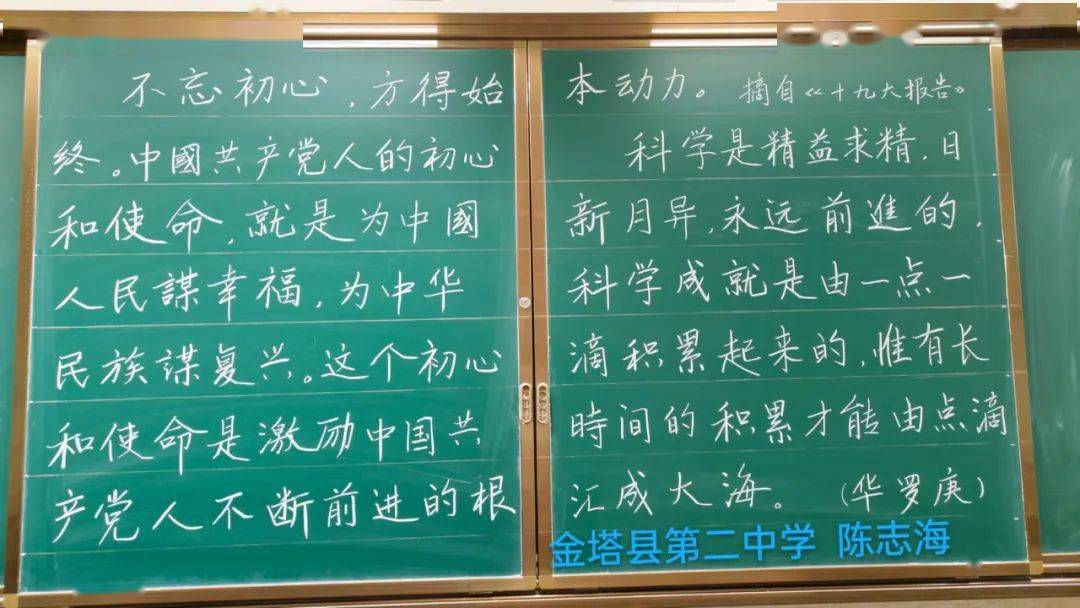 不忘初心，方得始
终。中國共产党人的初心
和使命，就是为中國
人民謀幸福，为中华
民族谋复兴。这个初心
和使命是激励中国共
产党人不断前进的根
本动力。摘自《十九大报告》
科学是精益求精，日
新月异，永远前進的，
科学成就是由一点一
滴积累起来的，惟有长
時间的积累才能由点滴
汇成大海。（华罗庚）
金塔县第二中学 陈志海